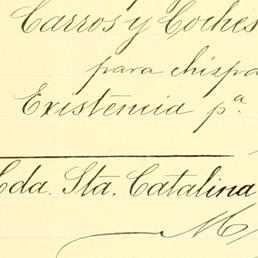 Carros y Coches
para chispa
Existencia pª.
Cda. Sta. Catalina
M